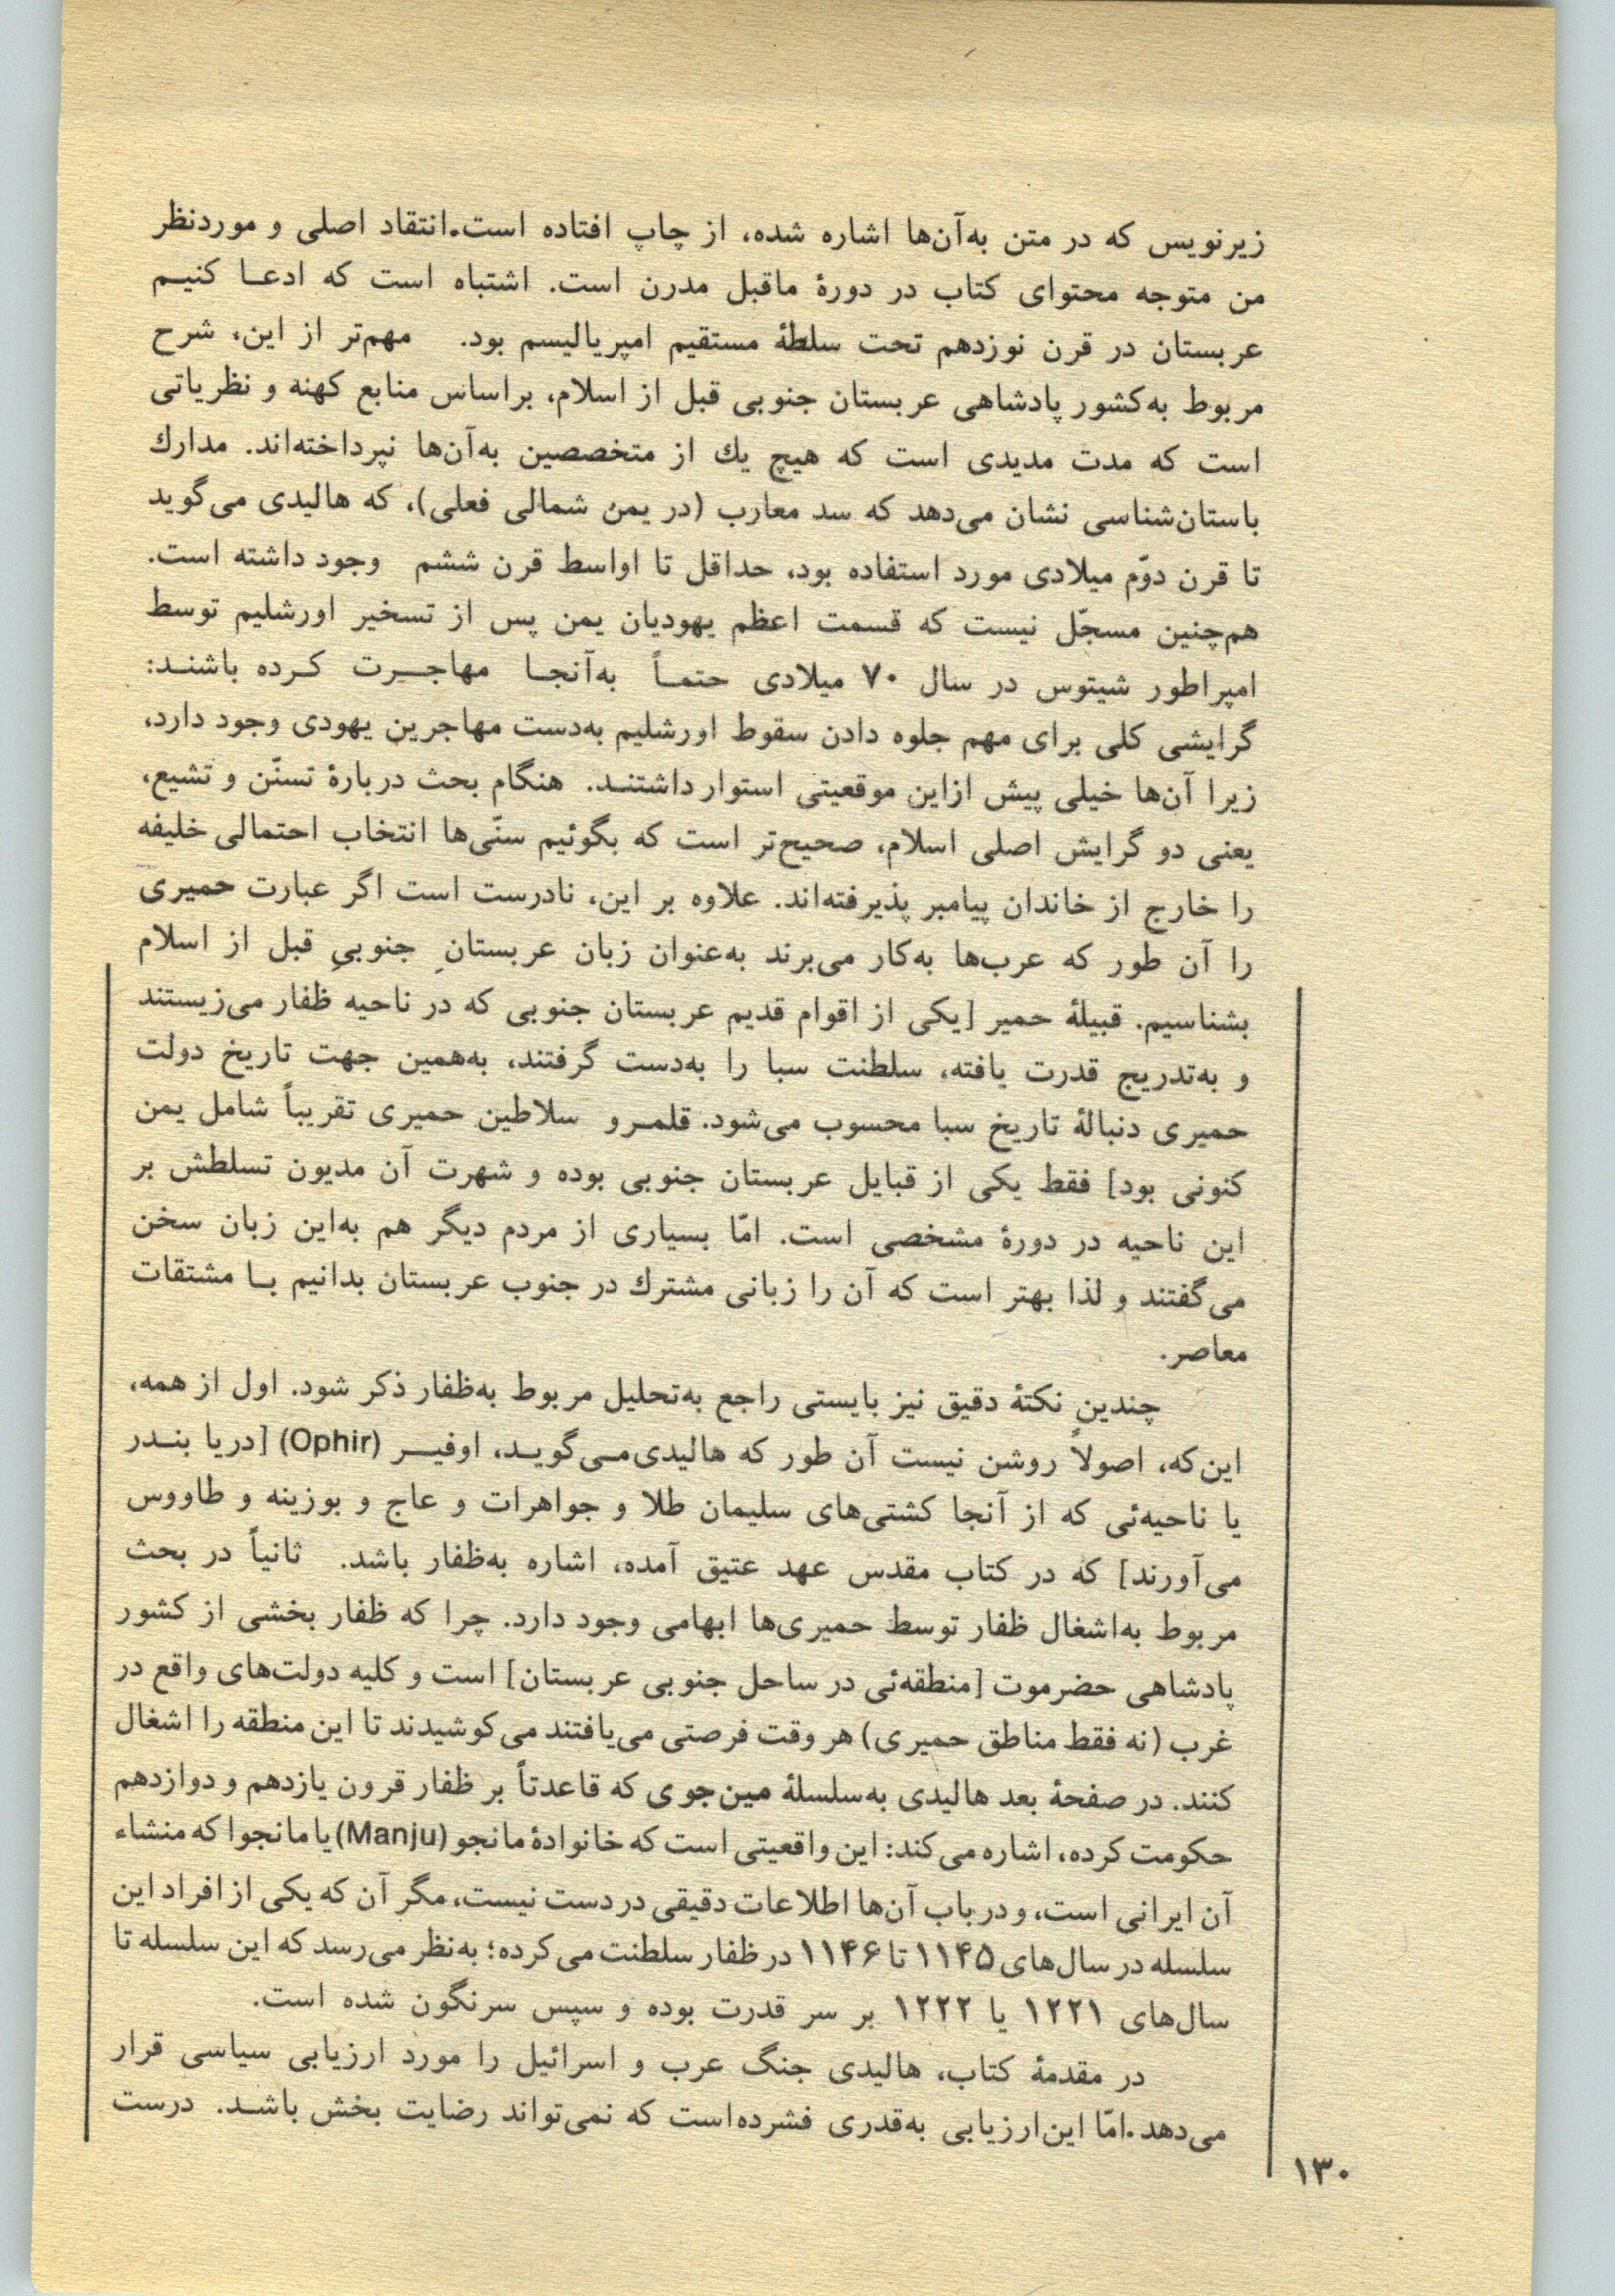 زیرنویس که در متن به‌آن‌ها اشاره شده، از چاپ افتاده است. انتقاد اصلی و موردنظر
من متوجه محتوای کتاب در دورهٔ ماقبل مدرن است. اشتباه است که ادعـا کنیـم
عربستان در قرن نوزدهم تحت سلطهٔ مستقیم امپریالیسم بود. مهم‌تر از این، شرح
مربوط به‌کشور پادشاهی عربستان جنوبی قبل از اسلام، براساس منابع کهنه و نظریاتی
است که مدت مدیدی است که هیچ یك از متخصصین به‌آن‌ها نپرداخته‌اند. مدارك
باستان‌شناسی نشان می‌دهد که سد معارب (در یمن شمالی فعلی)، که هالیدی می‌گوید
تا قرن دوّم میلادی مورد استفاده بود، حداقل تا اواسط قرن ششم وجود داشته است.
هم‌چنین مسجّل نیست که قسمت اعظم یهودیان یمن پس از تسخیر اورشلیم توسط
امپراطور شیتوس در سال ۷۰ میلادی حتمـاً به‌آنجـا مهاجـرت کـرده باشنـد:
گرایشی کلی برای مهم جلوه دادن سقوط اورشلیم به‌دست مهاجرین یهودی وجود دارد،
زیرا آن‌ها خیلی پیش ازاین موقعیتی استوار داشتنـد. هنگام بحث دربارهٔ تسنّن و تشیع،
یعنی دو گرایش اصلی اسلام، صحیح‌تر است که بگوئیم سنّی‌ها انتخاب احتمالی خلیفه
را خارج از خاندان پیامبر پذیرفته‌اند. علاوه بر این، نادرست است اگر عبارت حمیری
را آن طور که عرب‌ها به‌کار می‌برند به‌عنوان زبان عربستانِ جنوبیِ قبل از اسلام
بشناسیم. قبیلهٔ حمیر [یکی از اقوام قدیم عربستان جنوبی که در ناحیه ظفار می‌زیستند
و به‌تدریج قدرت یافته، سلطنت سبا را به‌دست گرفتند، به‌همین جهت تاریخ دولت
حمیری دنبالهٔ تاریخ سبا محسوب می‌شود. قلمـرو سلاطین حمیری تقریباً شامل یمن
کنونی بود] فقط یکی از قبایل عربستان جنوبی بوده و شهرت آن مدیون تسلطش بر
این ناحیه در دورهٔ مشخصی است. امّا بسیاری از مردم دیگر هم به‌این زبان سخن
می‌گفتند و لذا بهتر است که آن را زبانی مشترك در جنوب عربستان بدانیم بـا مشتقات
معاصر.
چندین نکتهٔ دقیق نیز بایستی راجع به‌تحلیل مربوط به‌ظفار ذکر شود. اول از همه،
این‌که، اصولاً روشن نیست آن طور که هالیدی‌مـی‌گویـد، اوفیـر (Ophir) [دریا بنـدر
یا ناحیه‌ئی که از آنجا کشتی‌های سلیمان طلا و جواهرات و عاج و بوزینه و طاووس
می‌آورند] که در کتاب مقدس عهد عتیق آمده، اشاره به‌ظفار باشد. ثانیاً در بحث
مربوط به‌اشغال ظفار توسط حمیری‌ها ابهامی وجود دارد. چرا که ظفار بخشی از کشور
پادشاهی حضرموت [منطقه‌ئی در ساحل جنوبی عربستان] است و کلیه دولت‌های واقع در
غرب (نه فقط مناطق حمیری) هر وقت فرصتی می‌یافتند می‌کوشیدند تا این منطقه را اشغال
کنند. در صفحهٔ بعد هالیدی به‌سلسلهٔ مین‌جوی که قاعدتاً بر ظفار قرون یازدهم و دوازدهم
حکومت کرده، اشاره می‌کند: این واقعیتی است که خانوادهٔ مانجو (Manju) یا مانجوا که منشاء
آن ایرانی است، و در باب آن‌ها اطلاعات دقیقی در دست نیست، مگر آن که یکی از افراد این
سلسله در سال‌های ۱۱۴۵ تا ۱۱۴۶ در ظفار سلطنت می‌کرده؛ به‌نظر می‌رسد که این سلسله تا
سال‌های ۱۲۲۱ یا ۱۲۲۲ بر سر قدرت بوده و سپس سرنگون شده است.
در مقدمهٔ کتاب، هالیدی جنگ عرب و اسرائیل را مورد ارزیابی سیاسی قرار
می‌دهد. امّا این‌ارزیابی به‌قدری فشرده‌است که نمی‌تواند رضایت بخش باشـد. درست
۱۳۰